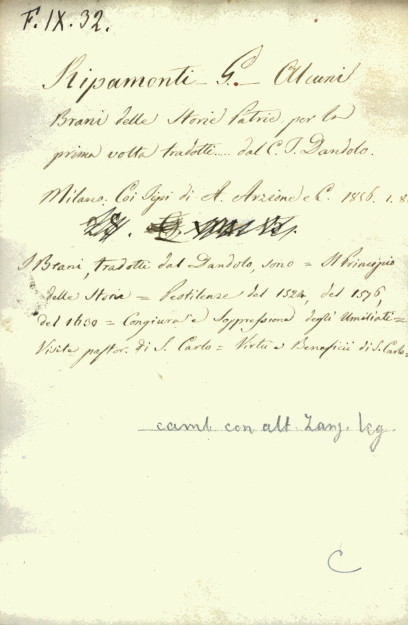 F. IX. 32.
Ripamonti - G. - Alcuni
Brani delle Storie Patrie per la
prima volta tradotti.... dal C. T. Dandolo.
Milano. Coi Tipi di A. Arzione e C. 1856. 1. 8
I Brani, tradotti dal Dandolo, sono = Il Principio
delle Storie = Pestilenze del 1524, del 1576,
del 1630 = Congiura e Soppressione degli Umiliati =
Visite pastor. di S. Carlo = Virtù e Beneficii di S. Carlo =
camb con alt. Zanj. leg.
C